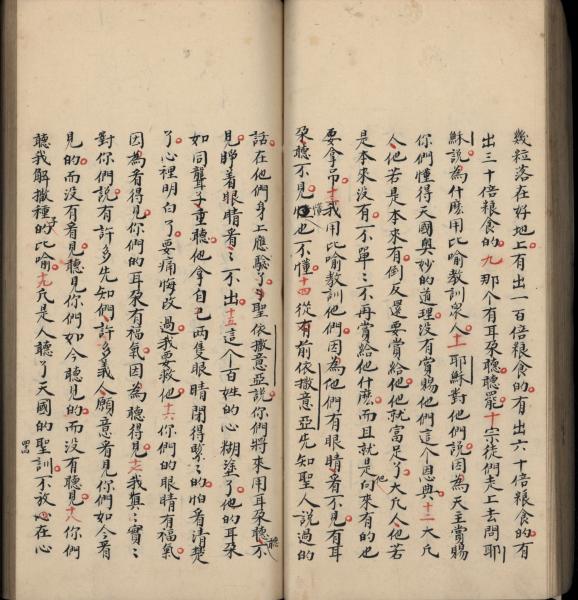 幾粒落在好地上有出一百倍粮食的有出六十倍粮食的有
出三十倍粮食的九那个有耳朶聽聽罷十宗徒們走上去問耶
穌說為什庅用比喻教訓衆人十一耶穌對他們說因為天主賞賜
你們懂得天國奥妙的道理沒有賞賜他們這个恩典十二大凢
人他若是本來有倒反還要賞給他他就富足了大凢人他若
是本來没有不單〻不再賞給他什庅而且就是向來有的他也
要拿吊十三我用比喻教訓他們因為他們有眼睛看不見有耳
朶聽不見懂也不懂十四從有前依撒意亞先知聖人說過的
話在他們身上應騐了聖依撒意亞説你們將來用耳朶聽聽不
見睜着眼睛看〻不出十五這个百姓的心糊塗了他的耳朶
如同聾子重聽他拿自己两隻眼睛閉得緊〻的怕看清楚
了心裡明白了要痛悔改過我要救他十六你們的眼睛有福氣
因為看得見你們的耳朶有福氣因為聽得見十七我真〻實〻
對你們說有許多先知們許多義人願意看見你們如今看
見的而没有看見聽見你們如今聽見的而没有聽見十八你們
聽我解撒種子的比喻十九凢是人聽了天國的聖訓不放心在心